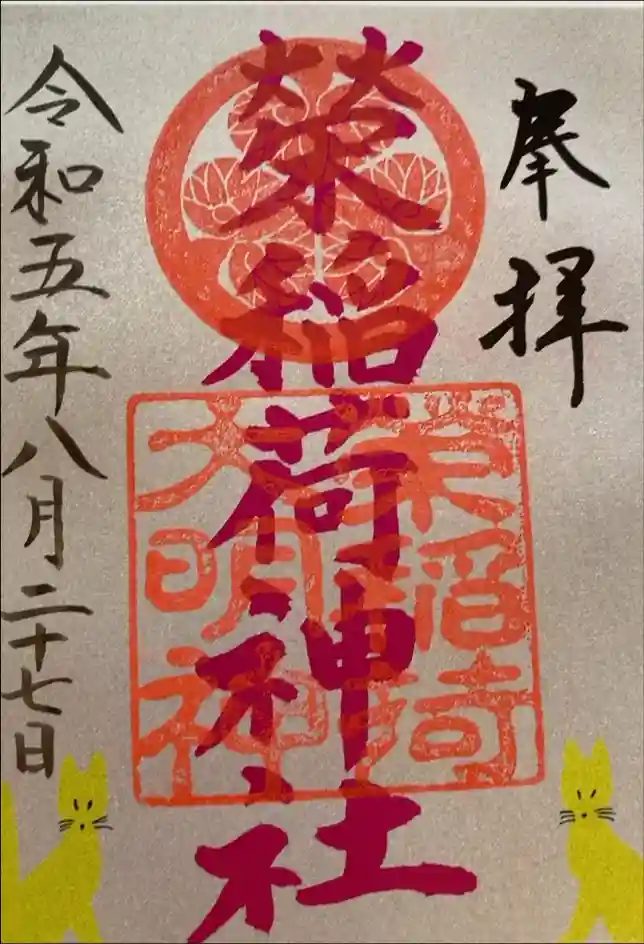 奉拝
榮稲荷神社
榮稲荷
大明神
令和五年八月二十七日